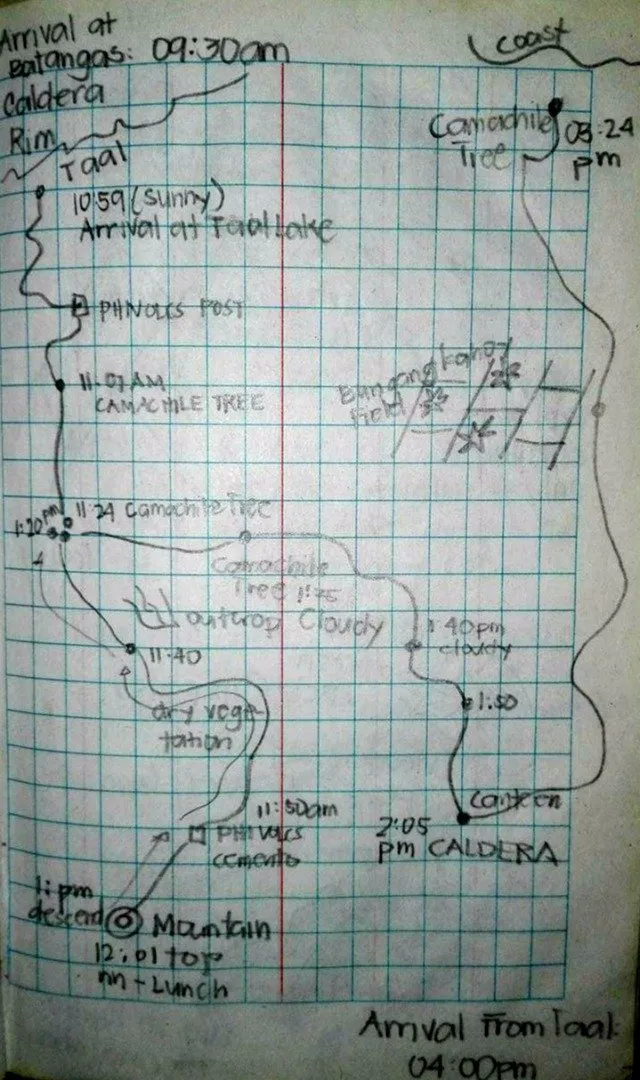 Arrival at
Batangas: 09:30am
Caldera
Rim
Taal
10:59 (sunny)
Arrival at Taal Lake
PHIVOLCS POST
11:07 AM
CAMACHILE TREE
11:24 Camachile Tree
1:20 pm
Camachile
Tree 1:25
outcrop Cloudy
11:40
dry vege
tation
11:50am
PHIVOLCS
cemento
1: pm
descend
Mountain
12:01 top
nn - Lunch
coast
Camachile
Tree
03:24
pm
Bungang kahoy
Field
1:40pm
cloudy
1:50
Canteen
2:05
pm CALDERA
Arrival From Taal:
04:00pm